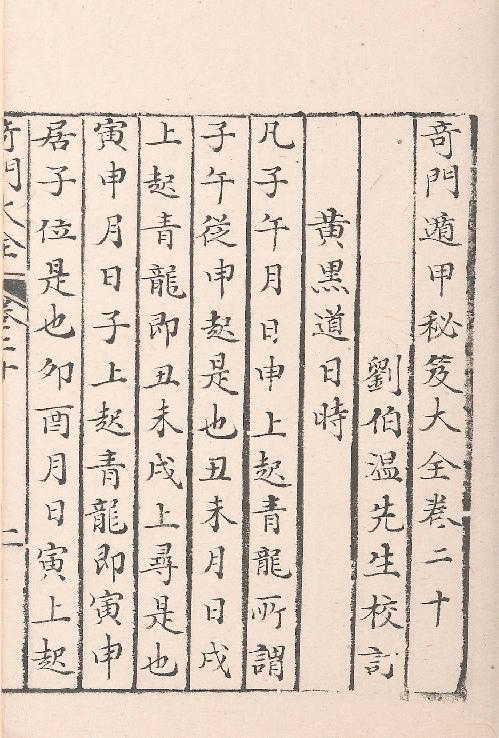 奇門遁甲秘笈大全卷二十
劉伯溫先生校訂
黃黑道日時
凡子午月日申上起青龍所謂
子午從申起是也丑未月日戌
上起青龍即丑未戌上尋是也
寅申月日子上起青龍即寅申
居子位是也卯酉月日寅上起
奇門大全 卷二十 一